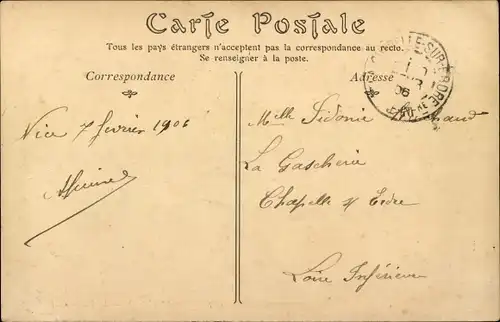 Carte Postale
Tous les pays étrangers n'acceptent pas la correspondance au recto.
Se renseigner à la poste.
Correspondance
Adresse
Nice 7 février 1906
Melle Sidonie
La Gascherie
Chapelle s/ Erdre
Loire Inférieure
ELLE-SUR-ERDRE
06